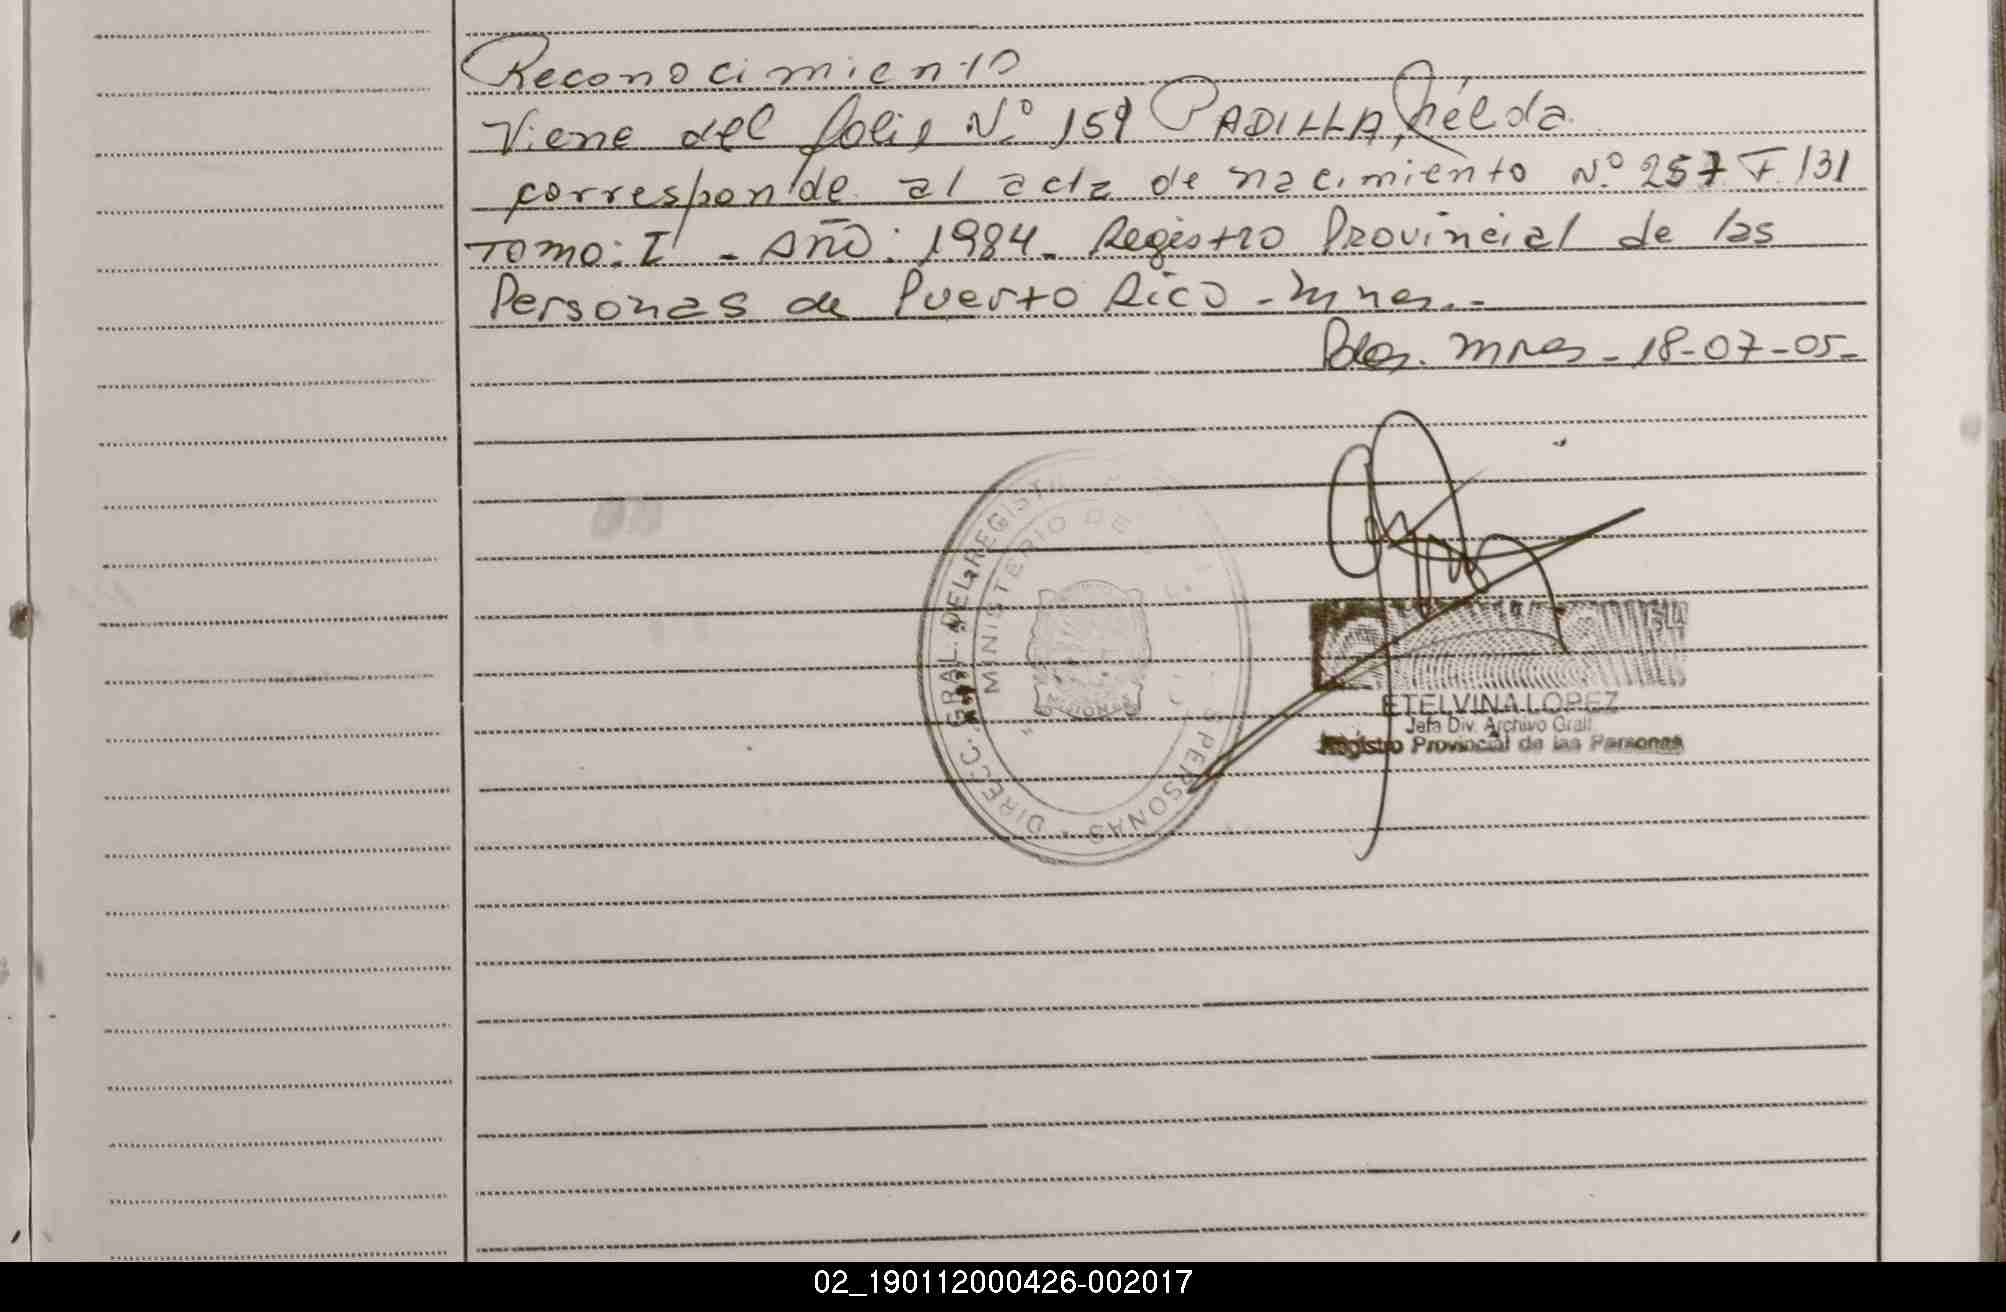 Reconocimiento
Viene del folio N° 159 PADILLA, Nélda
corresponde al acta de nacimiento N° 257 F. 131
TOMO: I - Año: 1984 - Registro Provincial de las
Personas de Puerto Rico - Mnes.-
Pdas. Mnes - 18-07-05-
DIRECC. GRAL. DEL REGISTRO PERSONAS
MINISTERIO DE
MISIONES
ETELVINA LOPEZ
Jefa Div. Archivo Gral.
Registro Provincial de las Personas
02_190112000426-002017